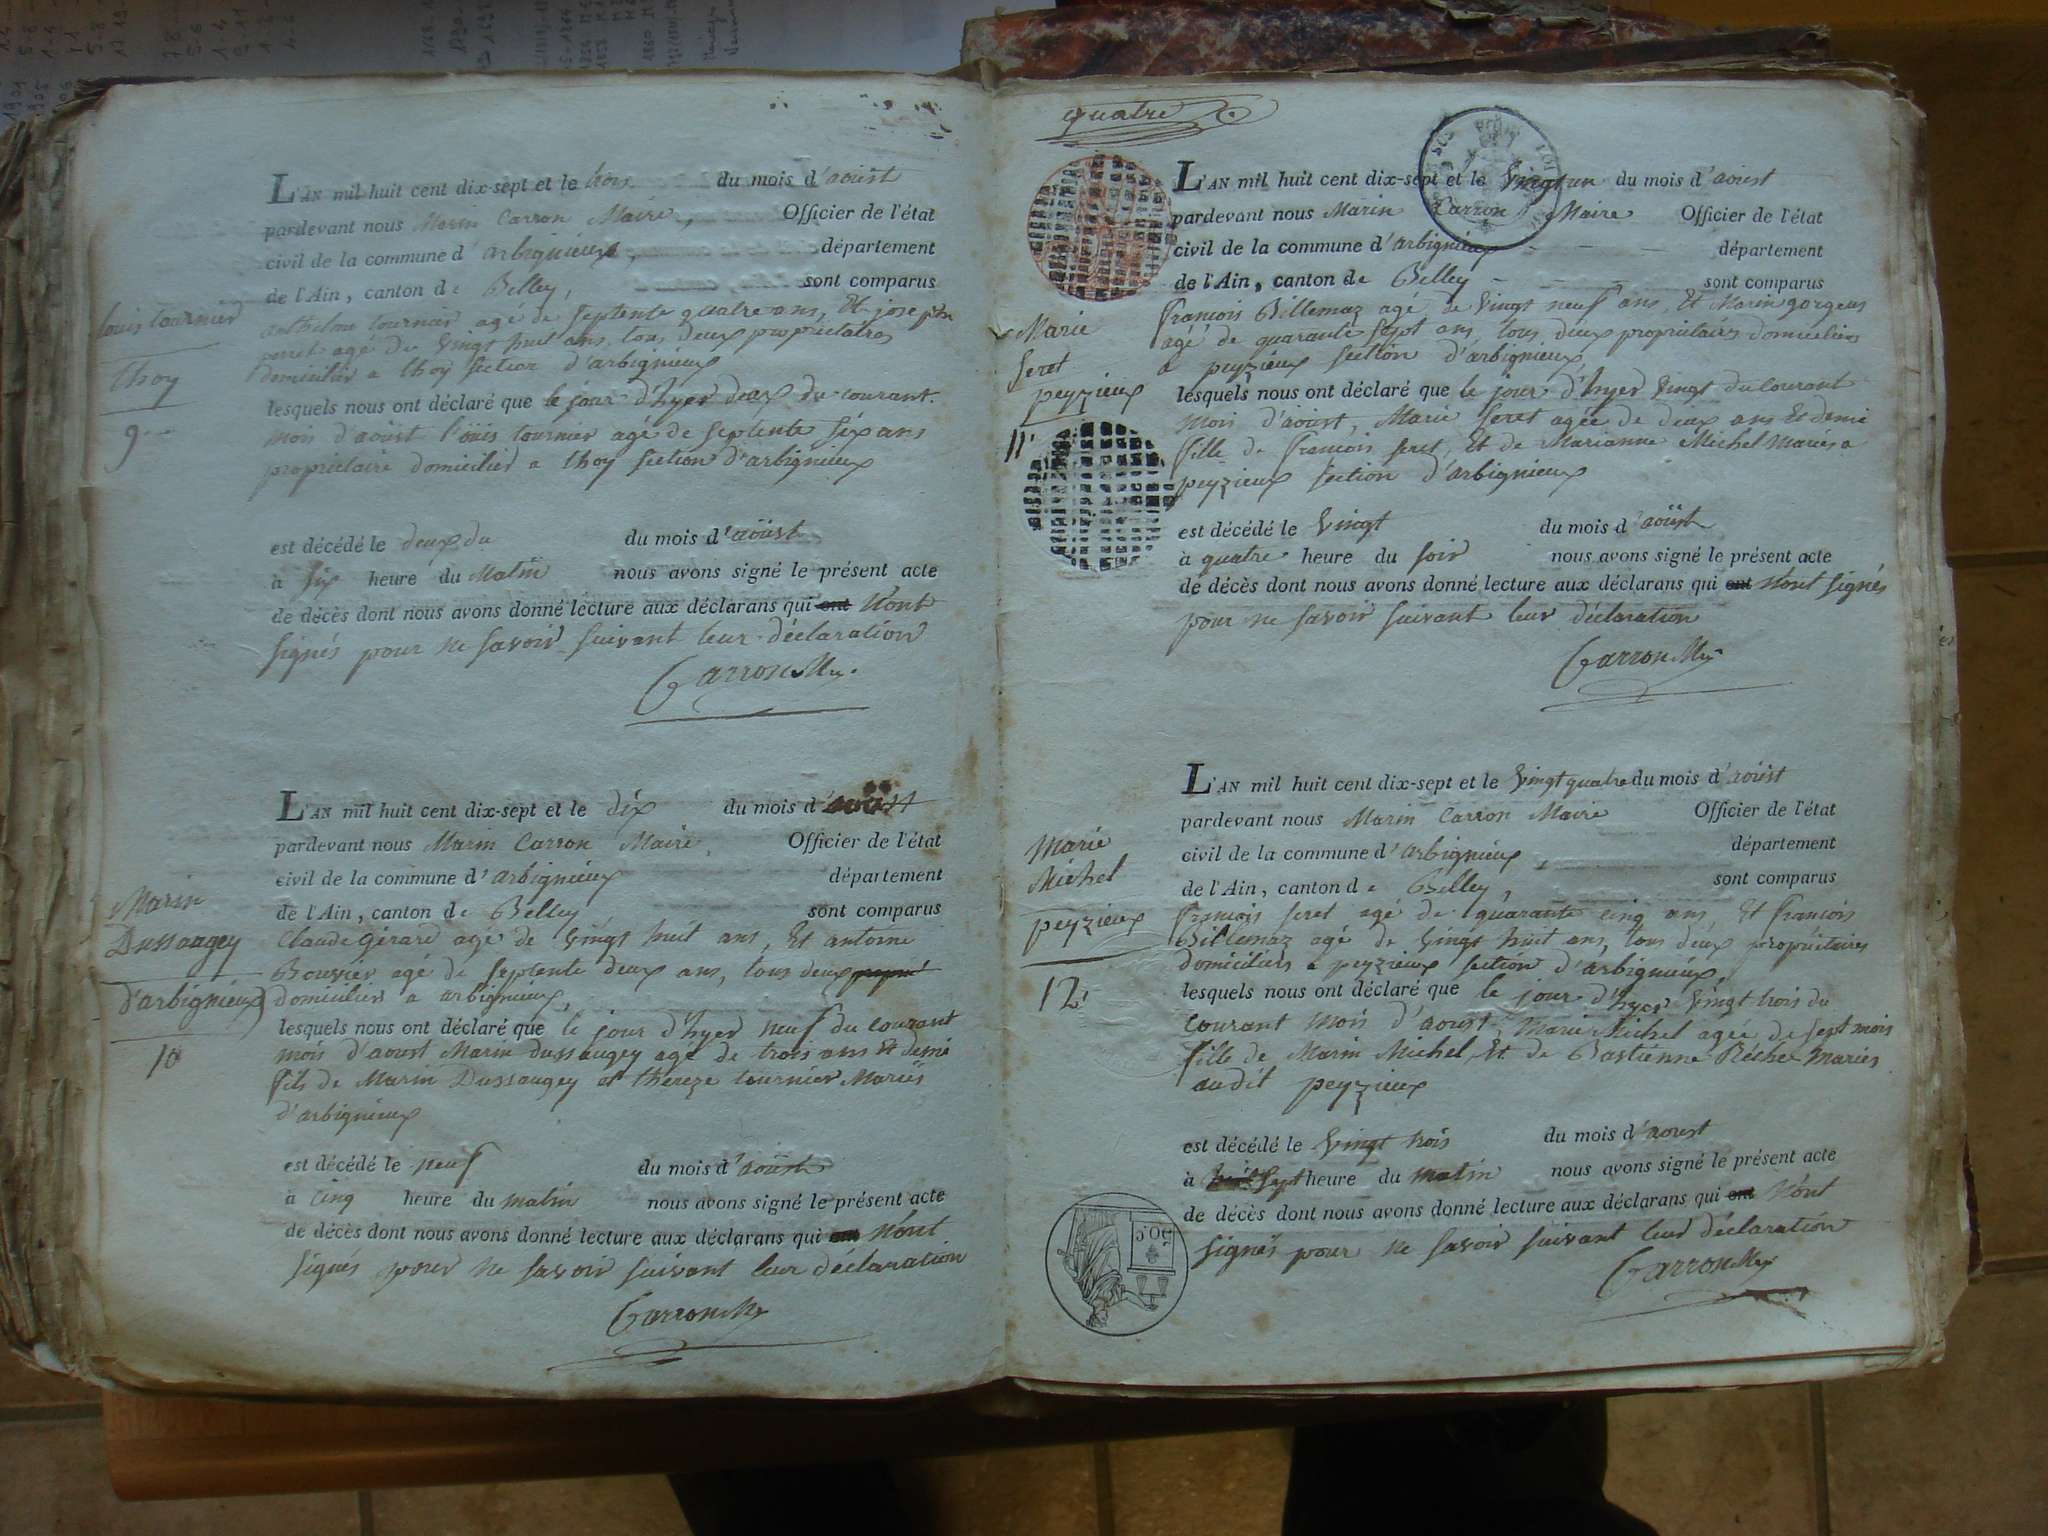 L'AN mil huit cent dix-sept et le trois du mois d'aoüst
pardevant nous Marin Carron Maire, Officier de l'état
civil de la commune d'arbignieux, département
de l'Ain, canton de Belley, sont comparus
anthelme tournier agé de septente quatre ans, Et joseph
perret agé de vingt huit ans, tous deux proprietaires
domicilies a thoy section d'arbignieux
lesquels nous ont déclaré que le jour d'hyer deux du courant
mois d'aoüst Loüis tournier agé de septente six ans
proprietaire domicilié a thoy section d'arbignieux
est décédé le deux du du mois d'aoüst
à six heure du Matin nous avons signé le présent acte
de décès dont nous avons donné lecture aux déclarans qui ont N'ont
signés pour ne savoir suivant leur déclaration
Carron Mre
Louis tournier
thoy
9
L'AN mil huit cent dix-sept et le dix du mois d'aoüst
pardevant nous Marin Carron Maire, Officier de l'état
civil de la commune d'arbignieux département
de l'Ain, canton de Belley sont comparus
Claude Gérard agé de vingt huit ans, Et antoine
Bouvier agé de septente deux ans, tous deux
domicilies a arbignieux,
lesquels nous ont déclaré que le jour d'hyer neuf du courant
mois d'aoust Marin Dussaugey agé de trois ans Et demi
fils de Marin Dussaugey et thereze tournier Mariés
d'arbignieux
est décédé le neuf du mois d'aoüst
à cinq heure du matin nous avons signé le présent acte
de décès dont nous avons donné lecture aux déclarans qui ont N'ont
signés pour ne savoir suivant leur déclaration
Carron Mre
Marin
Dussaugey
d'arbignieux
10
quatre
L'AN mil huit cent dix-sept et le vingt un du mois d'aoust
pardevant nous Marin Carron Maire Officier de l'état
civil de la commune d'arbignieux département
de l'Ain, canton de Belley sont comparus
francois Billemaz agé de vingt neuf ans, Et Marin gorgeus
agé de quarante sept ans, tous deux propriétaires domicilies
a peyzieux section d'arbignieux
lesquels nous ont déclaré que le jour d'hyer vingt du courant
mois d'aoust, Marie feret agée de deux ans Et demi
fille de francois feret, Et de Marianne Michel Mariés a
peyzieux section d'arbignieux
est décédé le vingt du mois d'aoüst
à quatre heure du soir nous avons signé le présent acte
de décès dont nous avons donné lecture aux déclarans qui ont N'ont signés
pour ne savoir suivant leur déclaration
Carron Mre
Marie
feret
peyzieux
11
L'AN mil huit cent dix-sept et le vingt quatre du mois d'aoüst
pardevant nous Marin Carron Maire Officier de l'état
civil de la commune d'arbignieux, département
de l'Ain, canton de Belley, sont comparus
francois feret agé de quarante cinq ans, Et francois
Billemaz agé de vingt huit ans, tous deux propriétaires
domiciliers a peyzieux section d'arbignieux,
lesquels nous ont déclaré que le jour d'hyer vingt trois du
courant mois d'aoust, Marie Michel agée de sept mois
fille de Marin Michel, Et de Bastienne Béchet Mariés
audit peyzieux
est décédé le vingt trois du mois d'aoust
à sept heure du matin nous avons signé le présent acte
de décès dont nous avons donné lecture aux déclarans qui ont N'ont
signés pour ne savoir suivant leur déclaration
Carron Mre
Marie
Michel
peyzieux
12
50 C.